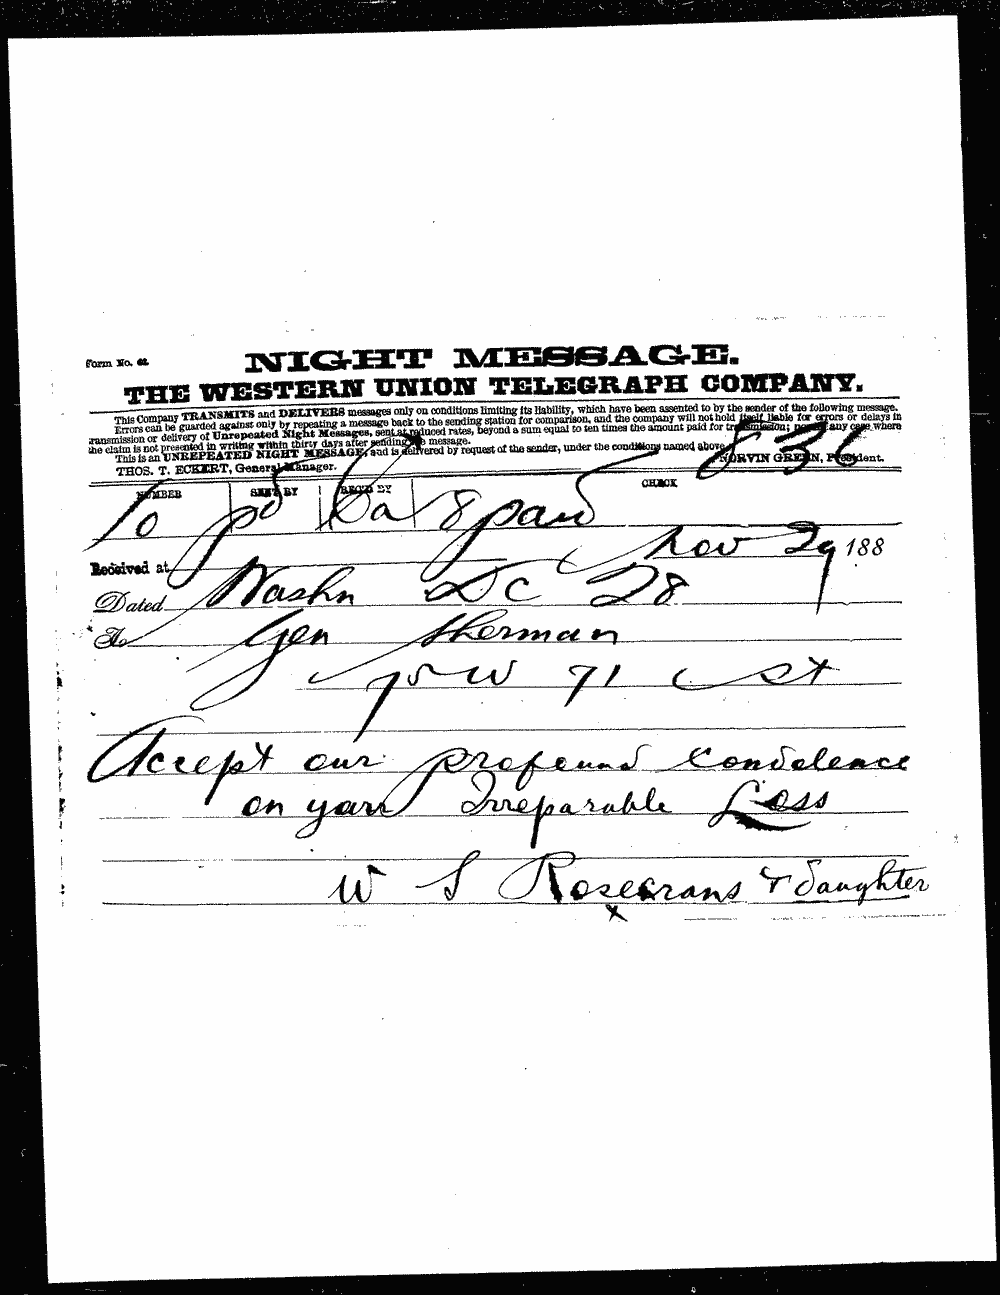 Form No. 62
NIGHT MESSAGE.
THE WESTERN UNION TELEGRAPH COMPANY.
This Company TRANSMITS and DELIVERS messages only on conditions limiting its liability, which have been assented to by the sender of the following message.
Errors can be guarded against only by repeating a message back to the sending station for comparison, and the company will not hold itself liable for errors or delays in
transmission or delivery of Unrepeated Night Messages, sent at reduced rates, beyond a sum equal to ten times the amount paid for transmission; nor in any case where
the claim is not presented in writing within thirty days after sending the message.
This is an UNREPEATED NIGHT MESSAGE, and is delivered by request of the sender, under the conditions named above.
THOS. T. ECKERT, General Manager. NORVIN GREEN, President.
836
NUMBER SENT BY REC'D BY CHECK
10 pd 8 paid
Received at Nov 29 188
Dated Washn DC 28
To Gen Sherman
75 W 71 St
Accept our profound Condolence
on your Irreparable Loss
W S Rosecrans & daughter
x